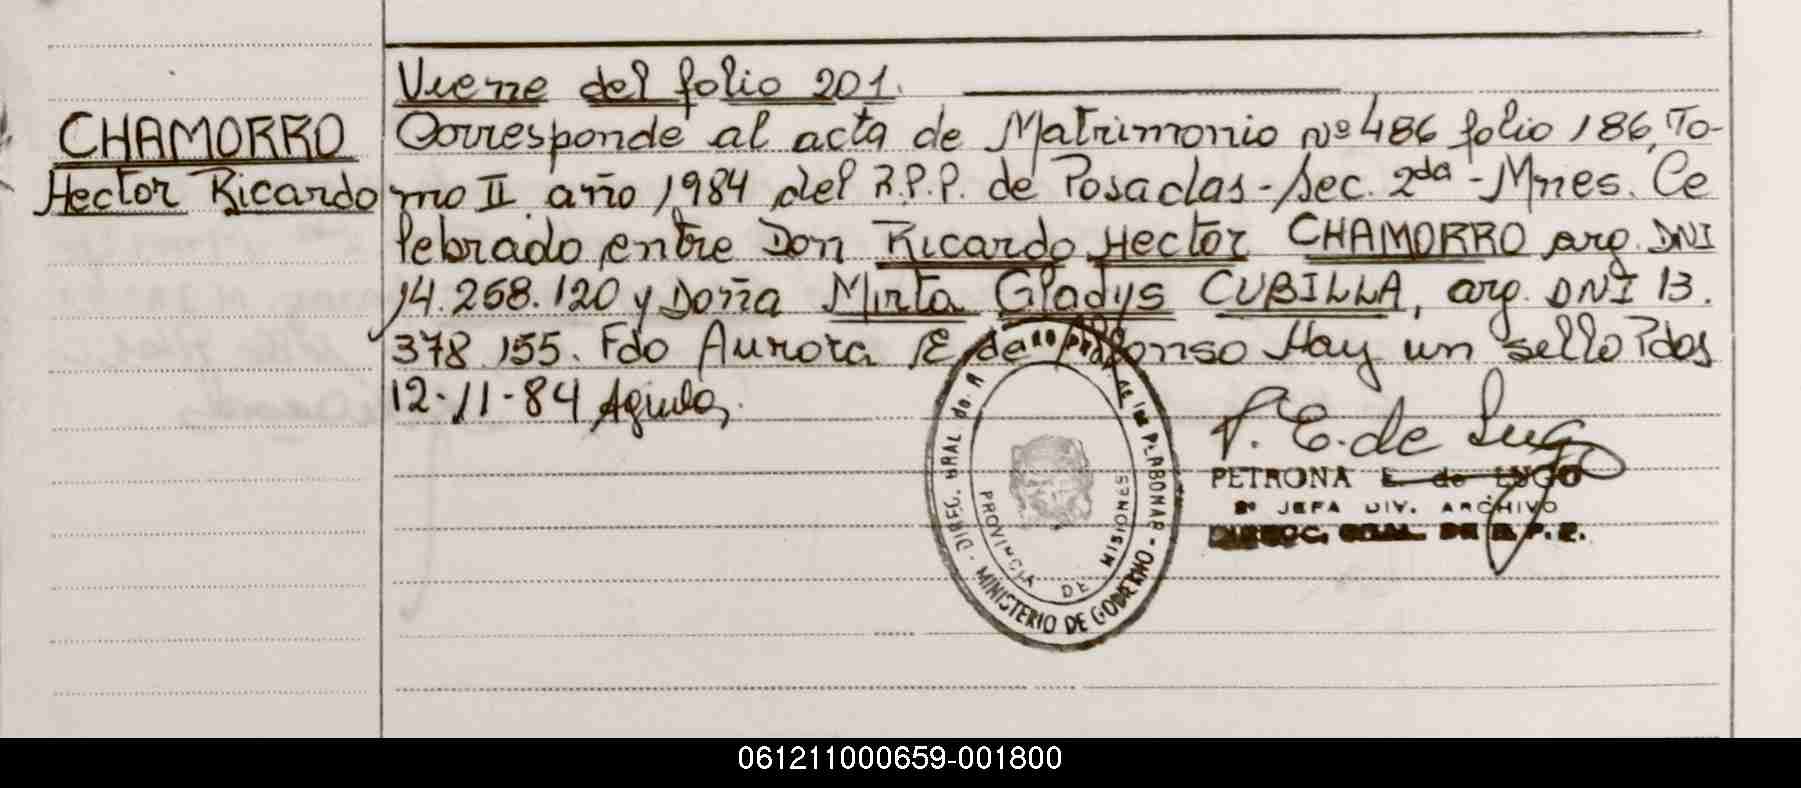 Viene del folio 201.
CHAMORRO
Hector Ricardo
Corresponde al acta de Matrimonio Nº 486 folio 186, To-
mo II año 1984 del R.P.P. de Posadas - Sec. 2da - Mnes. Ce
lebrado entre Don Ricardo Hector CHAMORRO arg. DNI
14.258.120 y Doña Mirta Gladys CUBILLA, arg. DNI 13.
378.155. Fdo Aurora E de Alfonso Hay un sello Pdas
12-11-84
P. E. de Lugo
PETRONA E. de LUGO
JEFA DIV. ARCHIVO
DIREC. GRAL. DE R.P.P.
DIREC. GRAL. de las PERSONAS - MINISTERIO DE GOBIERNO
PROVINCIA DE MISIONES
061211000659-001800